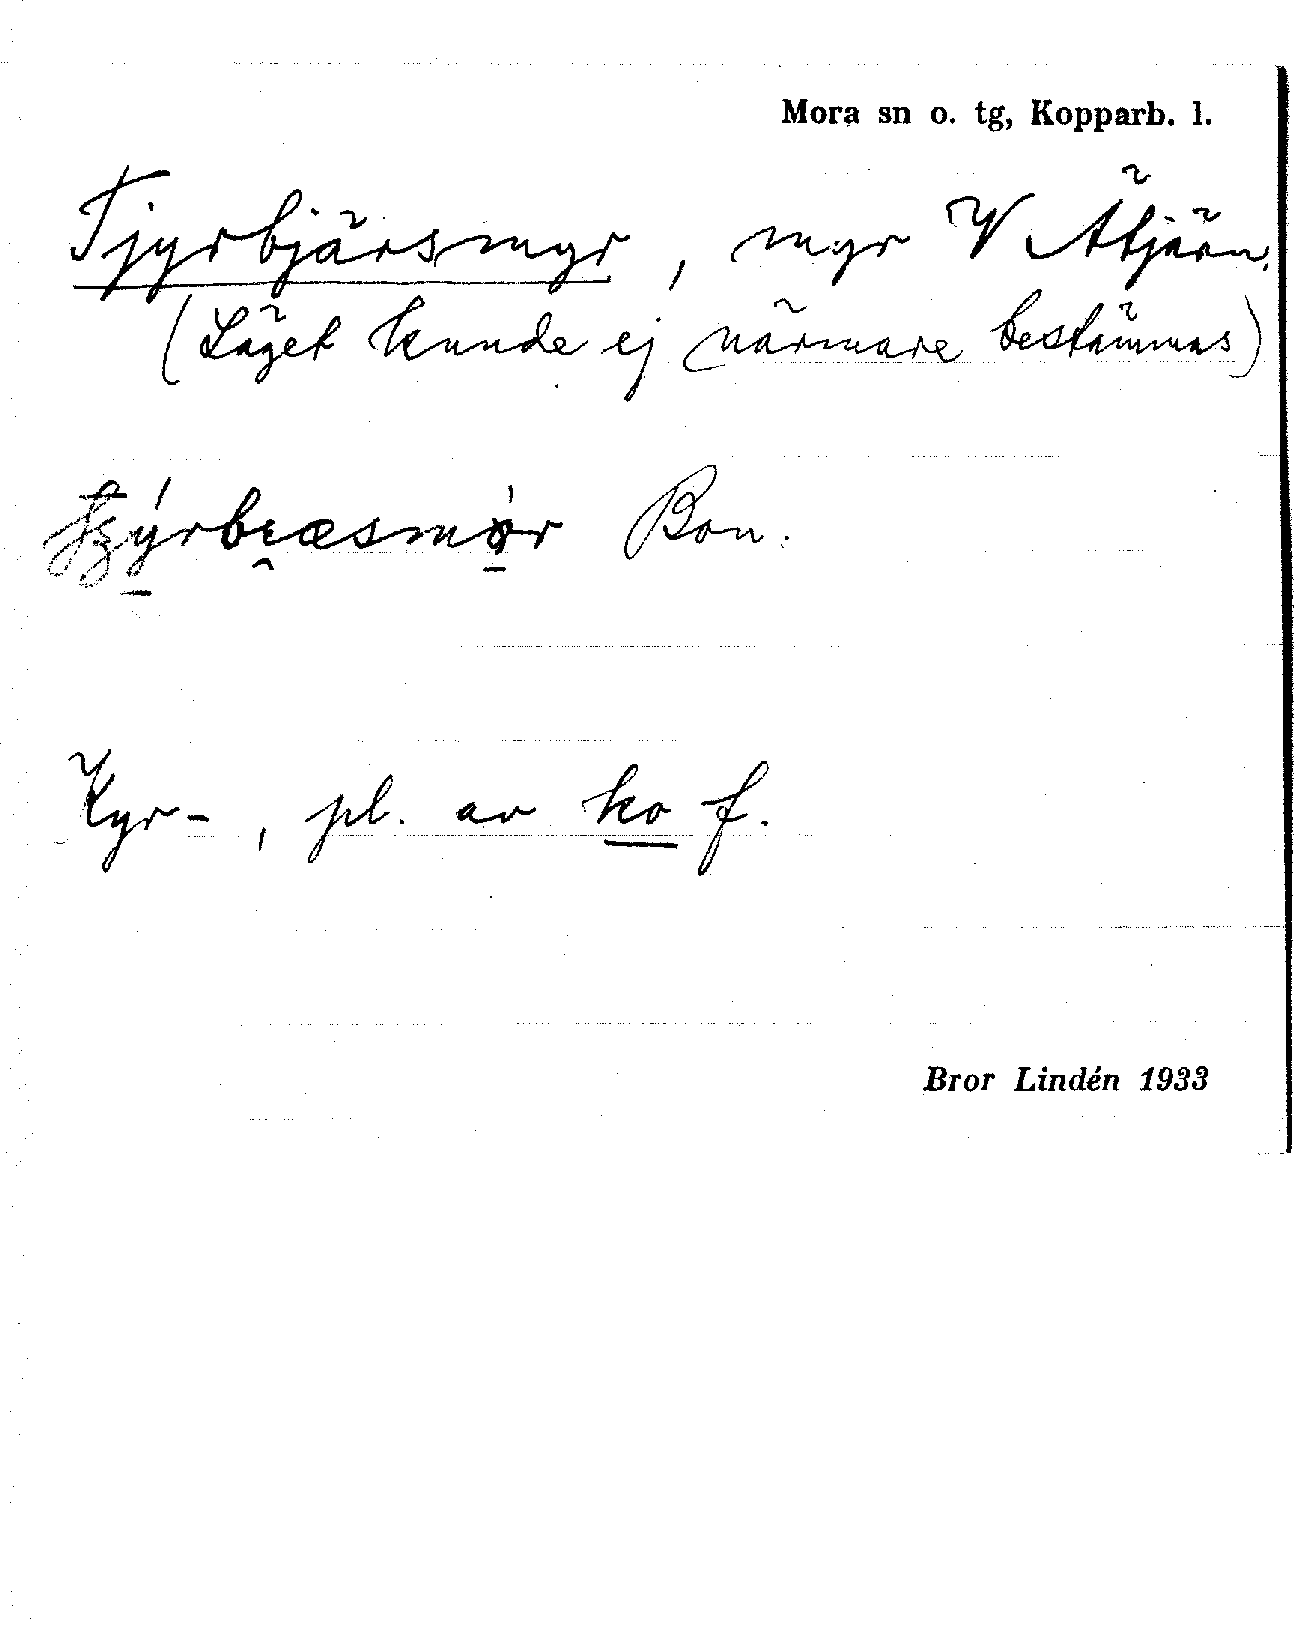 Mora sn o. tg, Kopparb. l.
Tjyrbjärsmyr, myr V Ätjärn.
(Läget kunde ej närmare bestämmas)
Bon.
Kyr-, pl. av ko f.
Bror Lindén 1933